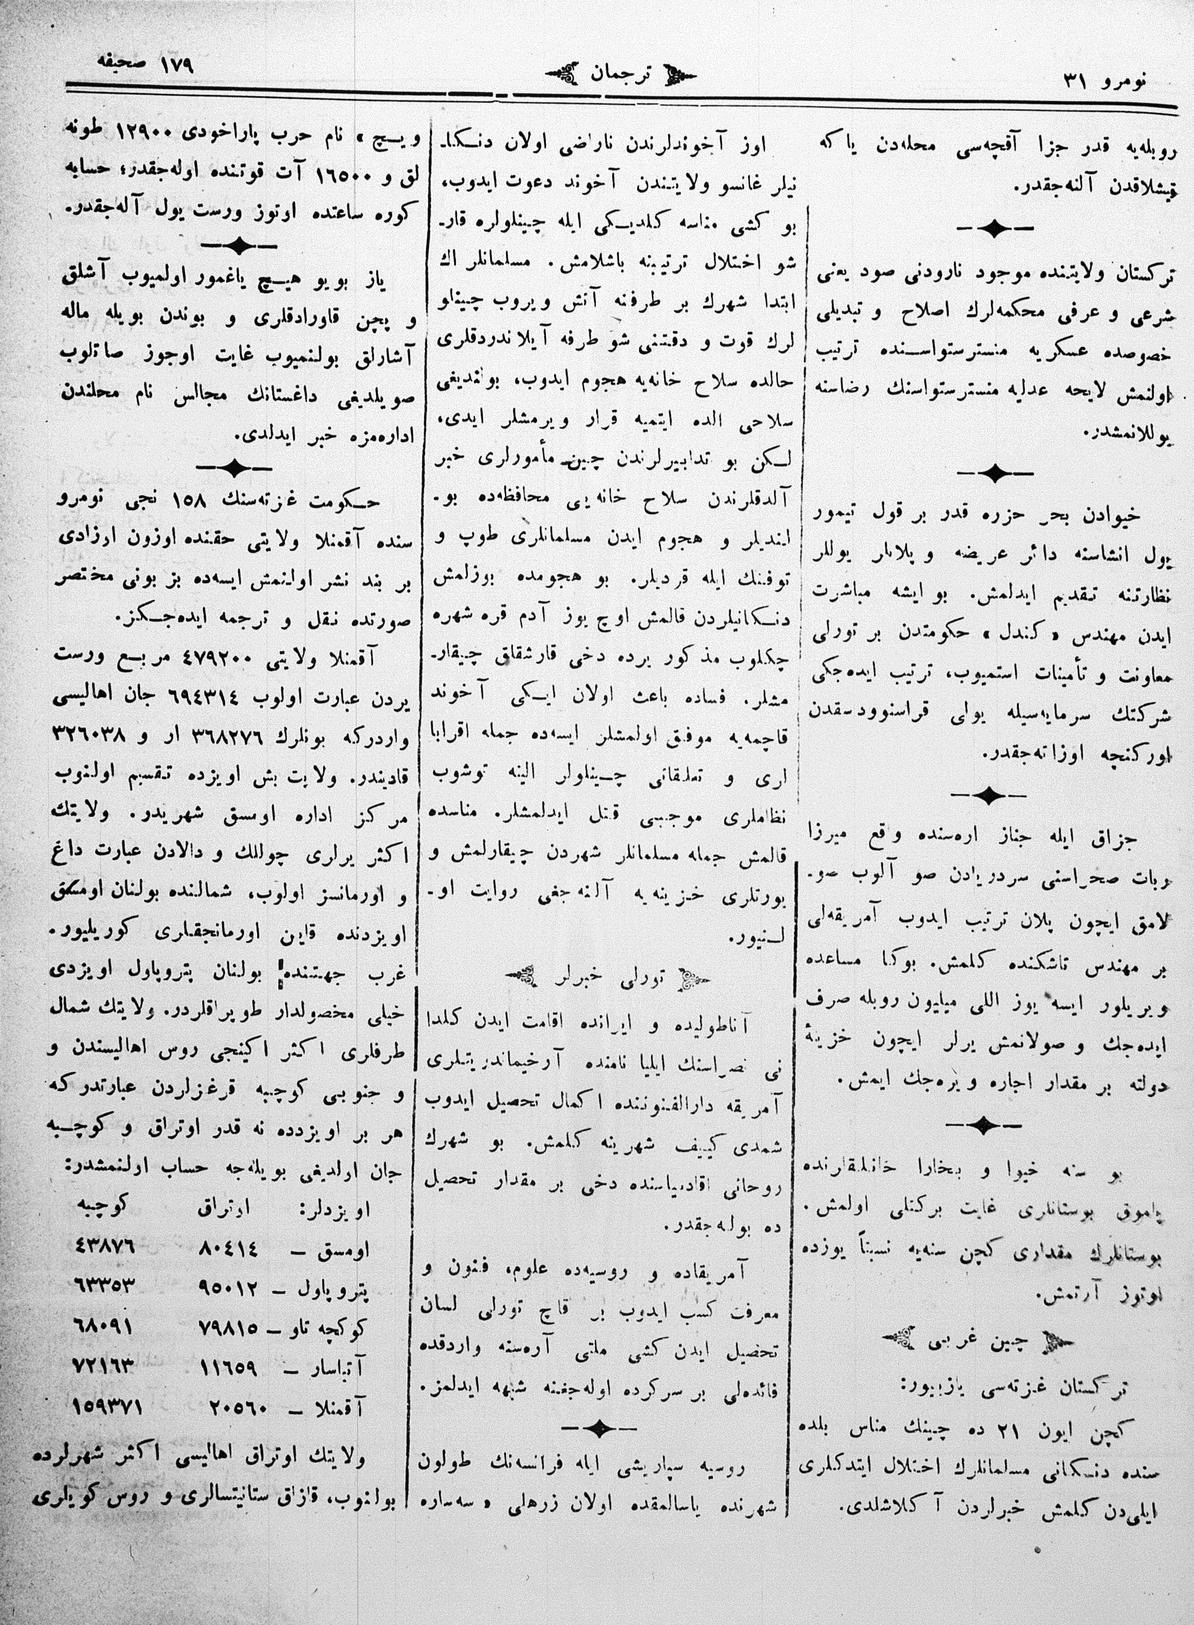 نومرو ٣١
ترجمان
١٧٩ صحيفه
روبله‌يه قدر جزا آقچه‌سی محله‌دن ياكه
قيشلاقدن آلنه‌جقدر.
تركستان ولايتنده موجود نارودنی صود يعنی
شرعی و عرفی محكمه‌لرك اصلاح و تبديلی
خصوصده عسكريه منسترستواسنده ترتيب
اولنمش لايحه عدليه منسترستواسنك رضاسنه
يوللانمشدر.
خيوادن بحر حزره قدر بر قول تيمور
يول انشاسنه دائر عريضه و پلانلر يوللر
نظارتنه تقديم ايدلمش. بو ايشه مباشرت
ايدن مهندس «كندل» حكومتدن بر تورلی
معاونت و تأمينات استميوب، ترتيب ايده‌جكی
شركتك سرمايه‌سيله يولی قراسنوودسقدن
اوركنچه اوزاته‌جقدر.
جزاق ايله جناز اره‌سنده واقع ميرزا
ربات صحراسنی سردريادن صو آلوب صو-
لامق ايچون پلان ترتيب ايدوب آمريقه‌لی
بر مهندس تاشكنده كلمش. بوكا مساعده
ويريلور ايسه يوز اللی ميليون روبله صرف
ايده‌جك و صولانمش يرلر ايچون خزينهٔ
دولته بر مقدار اجاره ويره‌جك ايمش.
بو سنه خيوا و بخارا خانلقلرنده
پاموق بوستانلری غايت بركتلی اولمش.
بوستانلرك مقداری كچن سنه‌يه نسبتاً يوزده
اوتوز آرتمش.
چين غربی
تركستان غزته‌سی يازييور:
كچن ايون ٢١ ده چينك مناس بلده
سنده دنكانی مسلمانلرك اختلال ايتدكلری
ايلی‌دن كلمش خبرلردن آكلاشلدی.
اوز آخوندلرندن ناراضی اولان دنكا-
نيلر غانسو ولايتندن آخوند دعوت ايدوب،
بو كشی مناسه كلديكی ايله چينلولره قار-
شو اختلال ترتيبنه باشلامش. مسلمانلر اك
ابتدا شهرك بر طرفنه آتش ويروب چينلو
لرك قوت و دقتنی شو طرفه آيلاندردقلری
حالده سلاح خانه‌يه هجوم ايدوب، بولنديغی
سلاحی الده ايتميه قرار ويرمشلر ايدی،
لكن بو تدابيرلرندن چين مأمورلری خبر
آلدقلرندن سلاح خانه‌يی محافظه‌ده بو-
لنديلر و هجوم ايدن مسلمانلری طوپ و
توفنك ايله قرديلر. بو هجومده بوزلمش
دنكانيلردن قالمش اوچ يوز آدم قره شهره
چكلوب مذكور يرده دخی قارشقلق چيقار-
مشلر. فساده باعث اولان ايكی آخوند
قاچمه‌يه موفق اولمشلر ايسه‌ده جمله اقربا
لری و تعلقاتی چينلولر الينه توشوب
نظاملری موجبی قتل ايدلمشلر. مناسده
قالمش جمله مسلمانلر شهردن چيقارلمش و
يورتلری خزينه‌يه آلنه‌جغی روايت او-
لنيور.
تورلی خبرلر
آناطوليده و ايرانده اقامت ايدن كلدا
نی نصراسنك ايليا نامنده آرخيماندريتلری
آمريقه دارالفنوننده اكمال تحصيل ايدوب
شمدی كييف شهرينه كلمش. بو شهرك
روحانی اقادمياسنده دخی بر مقدار تحصيل
ده بوله‌جقدر.
آمريقاده و روسيه‌ده علوم، فنون و
معرفت كسب ايدوب بر قاچ تورلی لسان
تحصيل ايدن كشی ملتی آره‌سنه واردقده
فائده‌لی بر سركرده اوله‌جغنه شبهه ايدلمز.
روسيه سپاريشی ايله فرانسه‌نك طولون
شهرنده ياسالمقده اولان زرهلی «سه‌ساره
ويچ» نام حرب پاراخودی ١٢٩٠٠ طونه
لق و ١٦٥٠٠ آت قوتنده اوله‌جقدر؛ حسابه
كوره ساعتده اوتوز ورست يول آله‌جقدر.
ياز بويو هيچ ياغمور اولميوب آشلق
و پچن قاورادقلری و بوندن بويله ماله
آشارلق بولنميوب غايت اوجوز صاتلوب
صويلديغی داغستانك مجالس نام محلندن
اداره‌مزه خبر ايدلدی.
حكومت غزته‌سنك ١٥٨ نجی نومرو
سنده آقمنلا ولايتی حقنده اوزون ارزادی
بر بند نشر اولنمش ايسه‌ده بز بونی مختصر
صورتده نقل و ترجمه ايده‌جكز.
آقمنلا ولايتی ٤٧٩٢٠٠ مربع ورست
يردن عبارت اولوب ٦٩٤٣١٤ جان اهاليسی
واردركه بونلرك ٣٦٨٢٧٦ ار و ٣٢٦٠٣٨
قاديندر. ولايت بش اويزده تقسيم اولنوب
مركز اداره اومسق شهريدر. ولايتك
اكثر يرلری چوللك و دالادن عبارت داغ
و اورمانسز اولوب، شمالنده بولنان اومسق
اويزدنده قاين اورمانجقلری كوريليور.
غرب جهتنده بولنان پتروپاول اويزدی
خيلی محصولدار طوپراقلردر. ولايتك شمال
طرفلری اكثر اكينجی روس اهاليسندن و
و جنوبی كوچبه قرغزلردن عبارتدركه
هر بر اويزدده نه قدر اوتراق و كوچبه
جان اولديغی بويله‌جه حساب اولنمشدر:
اويزدلر: اوتراق كوچبه
اومسق — ٨٠٤١٤ ٤٣٨٧٦
پتروپاول — ٩٥٠١٢ ٦٣٣٥٣
كوكچه تاو — ٧٩٨١٥ ٦٨٠٩١
آتباسار — ١١٦٥٩ ٧٢١٦٣
آقمنلا — ٢٠٥٦٠ ١٥٩٣٧١
ولايتك اوتراق اهاليسی اكثر شهرلرده
بولنوب، قازاق ستانيتسالری و روس كويلری